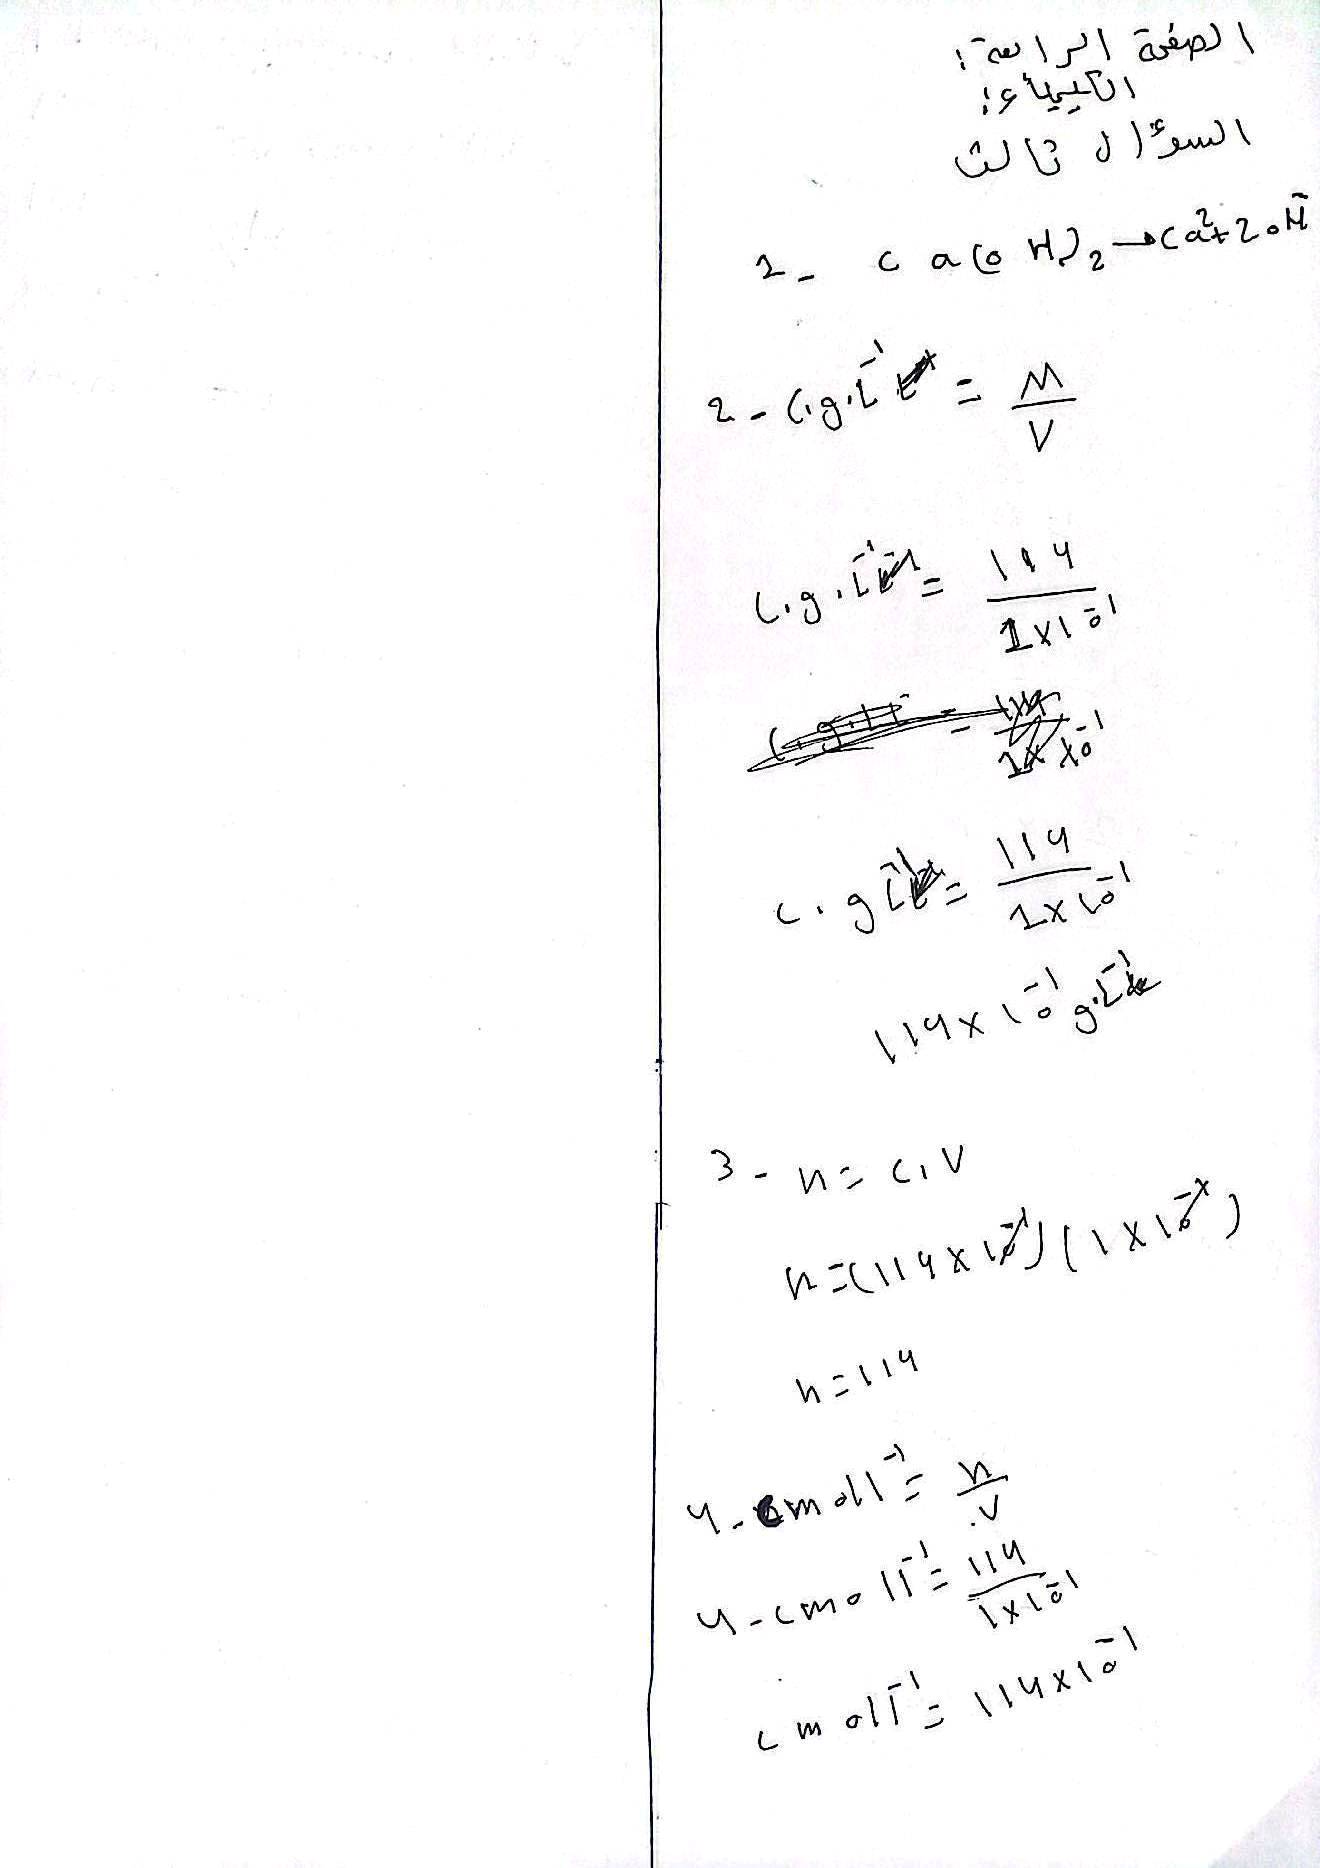 الصفحة الرابعة:
الكيمياء:
السؤال ثالث
1- Ca(OH)₂ → Ca²⁺ 2OH⁻
2- C.g.L⁻¹ = M/V
C.g.L⁻¹ = 114/1×10⁻¹
C.gL⁻¹ = 114/1×10⁻¹
114×10⁻¹ g.L⁻¹
3- n = C.V
n = (114×10⁻¹)(1×10⁻¹)
n = 114
4- Cmoll⁻¹ = n/V
4- cmoll⁻¹ = 114/1×10⁻¹
cmoll⁻¹ = 114×10⁻¹